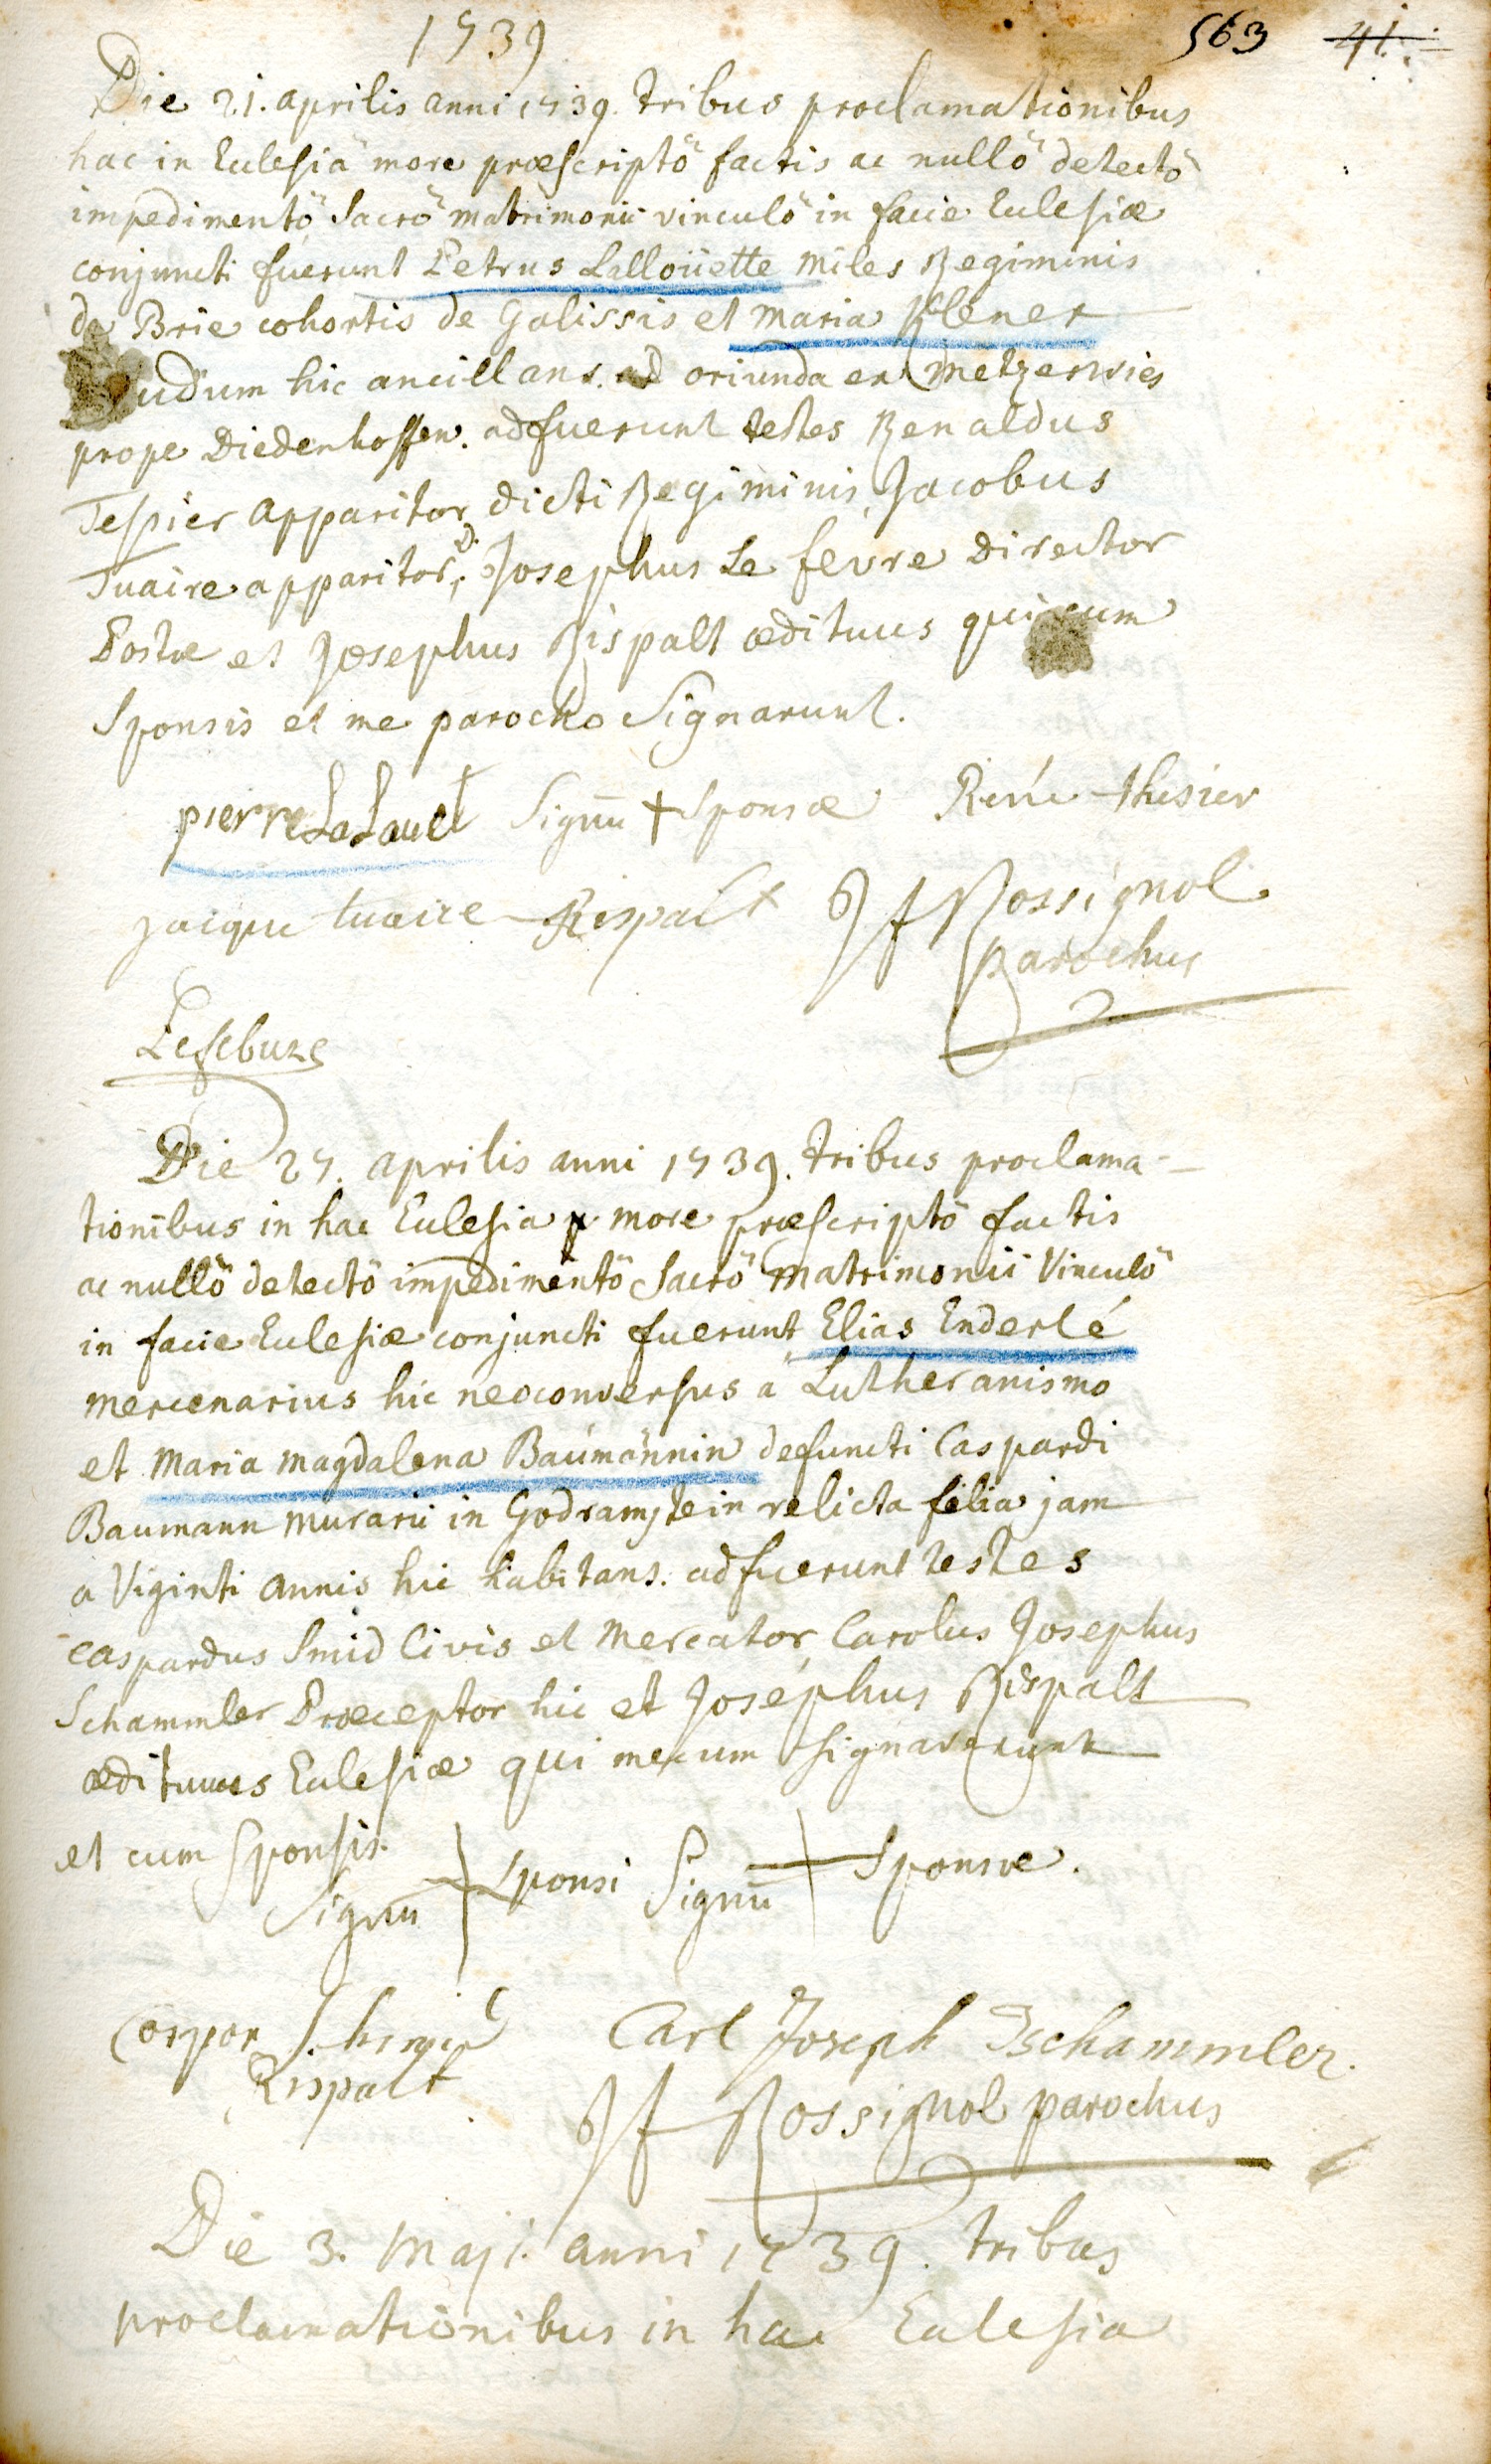 1739 563 41.
Die 21. aprilis anni 1739. tribus proclamationibus
hac in Eclesiâ more præscriptô factis ac nullô detectô
impedimentô Sacrô matrimonii vinculô in facie Eclesiæ
conjuncti fuerunt Petrus Lalloüette miles Regiminis
de Brie cohortis de Galissis et Maria Klener
udum hic ancillans. oriunda ex Metzerwies
prope Diedenhoffen. adfuerunt testes Renaldus
Tessier Apparitor dicti Regiminis, Jacobus
Tuaire apparitor, D. Josephus Le fevre Director
Postæ et Josephus Rispalt ædituus qui cum
Sponsis et me parocho Signarunt.
pierre LaLauet Signū + Sponsæ René thesier
jacque tuaire Rispalt JF Rossignol
parochus
Lefebure
Die 27. aprilis anni 1739. tribus proclama-
tionibus in hac Eclesia more præscriptô factis
ac nullô detectô impedimentô Sacrô matrimonii Vinculô
in facie Eclesiæ conjuncti fuerunt Elias Enderlé
mercenarius hic neoconversus à Lutheranismo
et Maria Magdalena Baúmännin defuncti Caspardi
Baumann murarii in Godramstein relicta filia jam
a Viginti annis hic habitans. adfuerunt testes
Caspardus Smid Civis et Mercator, Carolus Josephus
Schammler Præceptor hic et Josephus Rispalt
ædituus Eclesiæ qui mecum signaverunt
et cum Sponsis.
Signū + Sponsi Signū + Sponsæ.
Schmid Carl Joseph Tschammler.
Rispalt JF Rossignol parochus
Die 3. Maji. anni 1739. tribus
proclamationibus in hac Eclesia